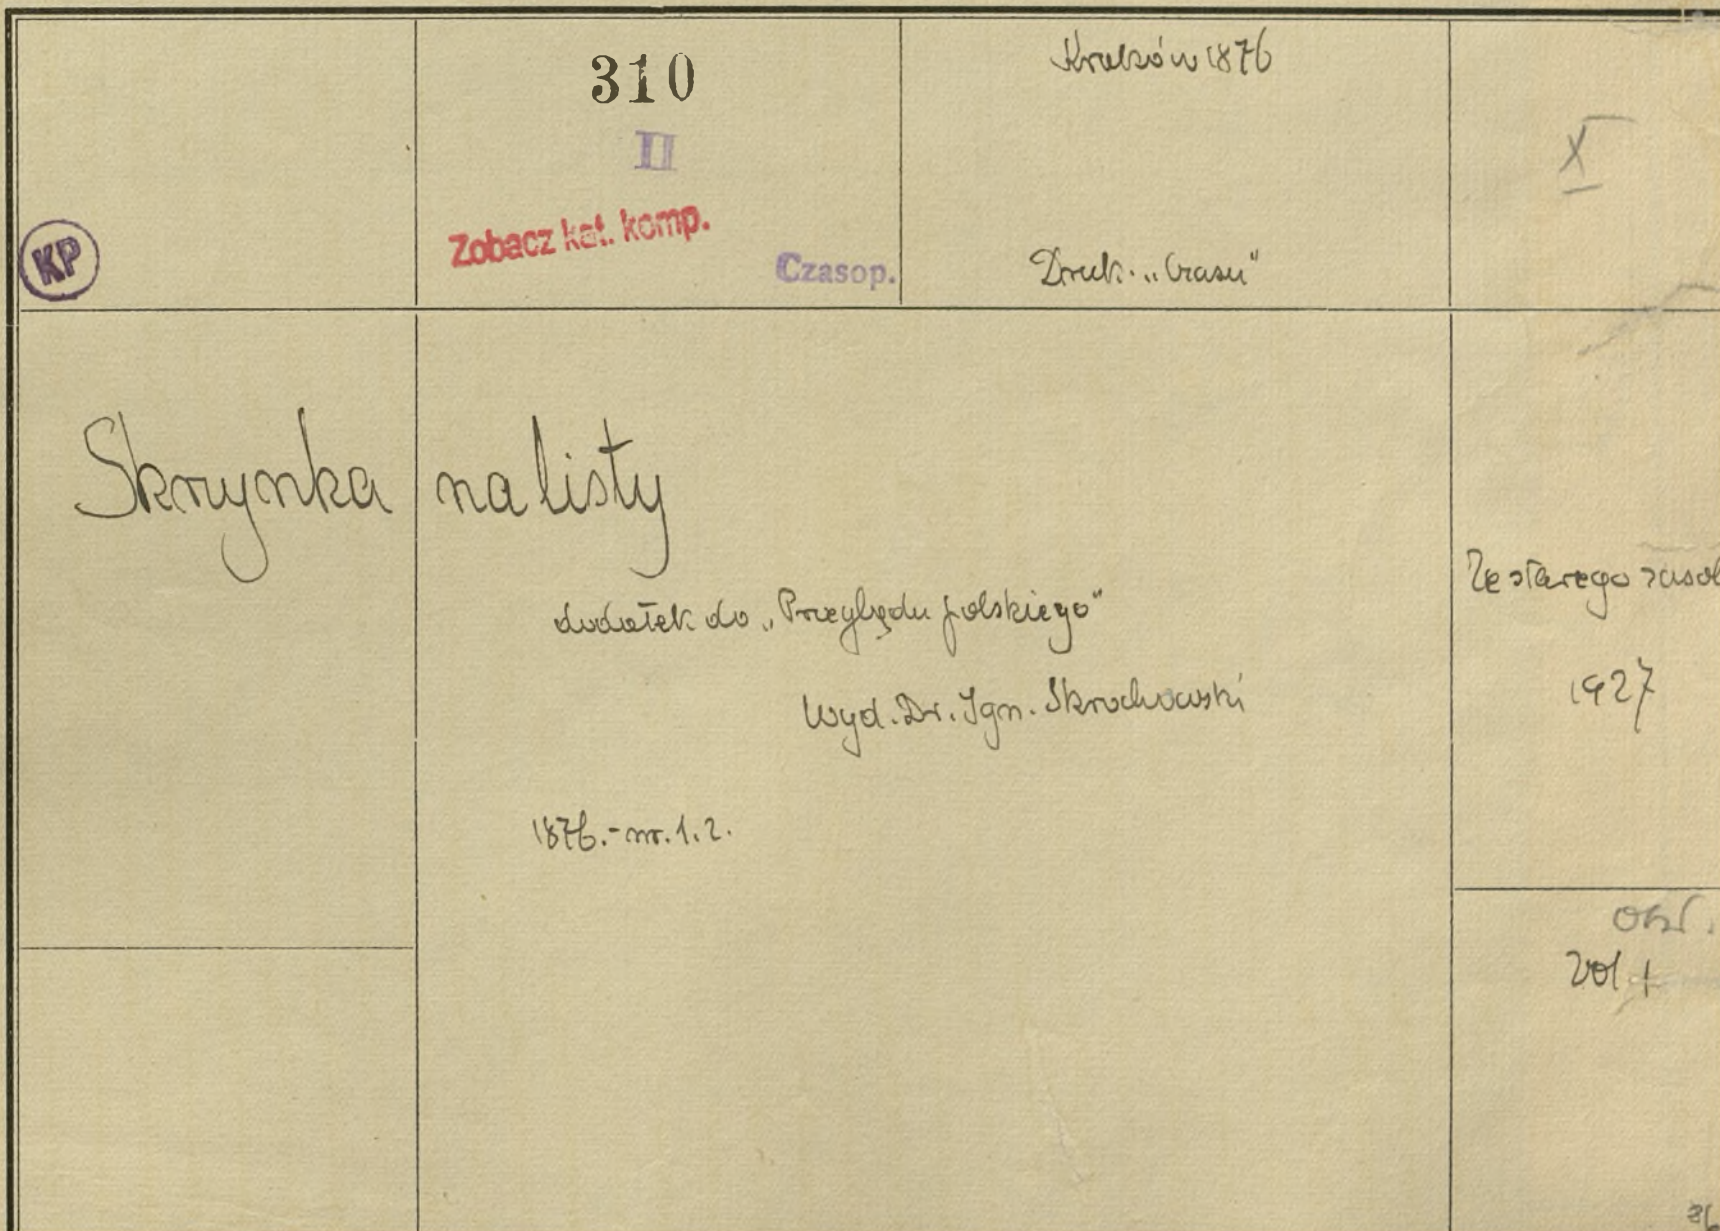 310
II
KP
Zobacz kat. komp.
Czasop.
Kraków 1876
Druk. „Czasu"
X
Skrzynka na listy
dodatek do „Przeglądu polskiego"
Wyd. Dr. Ign. Skrochowski
1876.- nr. 1. 2.
Ze starego zasob
1927
vol. 1